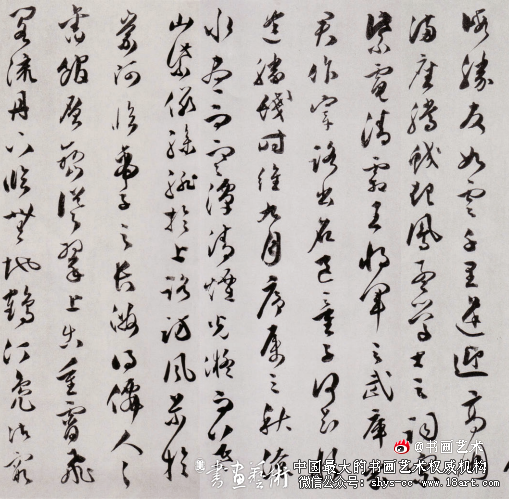 暇勝友如雲千里逢迎高朋
滿座騰蛟起鳳孟學士之詞宗
紫電清霜王將軍之武庫家
君作宰路出名區童子何知躬
逢勝餞時維九月序屬三秋潦
水盡而寒潭清煙光凝而暮
山紫儼驂騑於上路訪風景於
崇阿臨帝子之長洲得僊人之
舊館層巒聳翠上出重霄飛
閣流丹下臨無地鶴汀鳧渚窮
@书画艺术
書畫藝術
中国最大的书画艺术权威机构
微信公众号：shys-cc www.18art.com